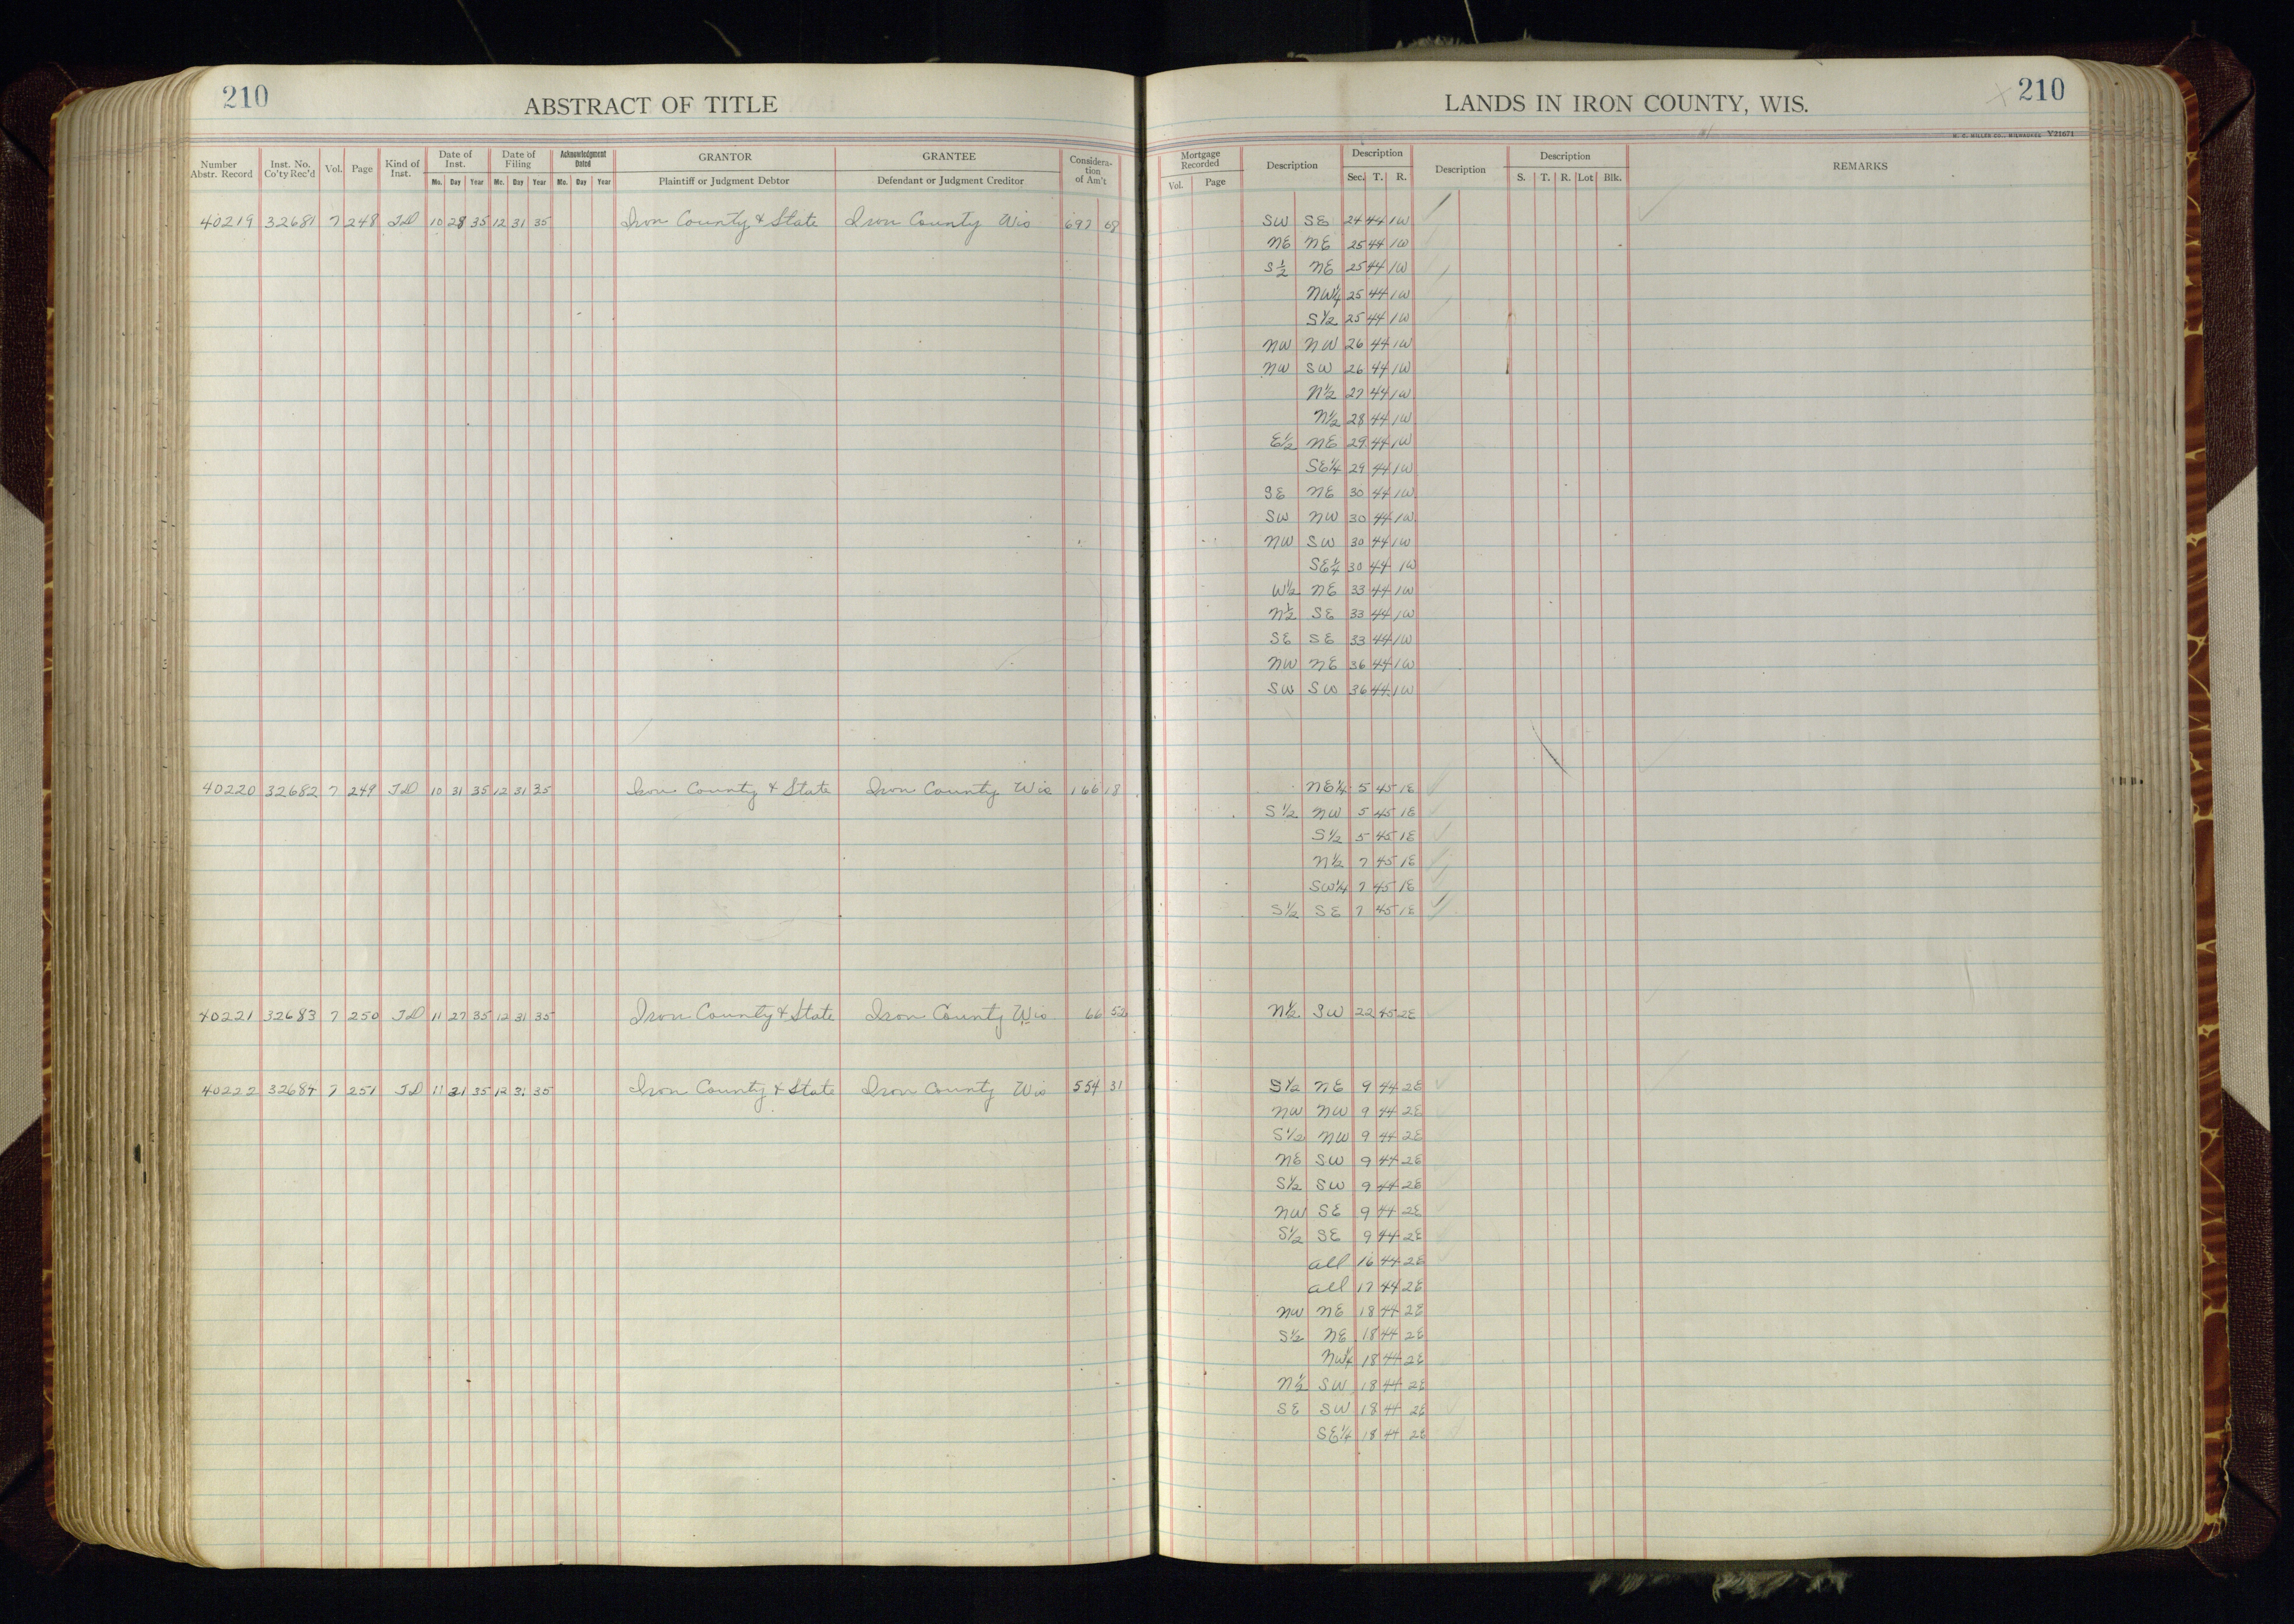 210
ABSTRACT OF TITLE
Number Abstr. Record Inst. No. Co'ty Rec'd Vol. Page Kind of Inst. Date of Inst. Mo. Day Year Date of Filing Mo. Day Year Acknowledgment Dated Mo. Day Year GRANTOR Plaintiff or Judgment Debtor GRANTEE Defendant or Judgment Creditor Considera-tion of Am't
40219 32681 7 248 TD 10 28 35 12 31 35 Iron County & State Iron County Wis 697 08
40220 32682 7 249 TD 10 31 35 12 31 35 Iron County & State Iron County Wis 166 18
40221 32683 7 250 TD 11 27 35 12 31 35 Iron County & State Iron County Wis 66 52
40222 32684 7 251 TD 11 21 35 12 31 35 Iron County & State Iron County Wis 554 31
LANDS IN IRON COUNTY, WIS.
210
H. C. MILLER CO., MILWAUKEE V21671
Mortgage Recorded Vol. Page Description Description Sec. T. R. Description Description S. T. R. Lot Blk. REMARKS
SW SE 24 44 1W
NE NE 25 44 1W
S½ NE 25 44 1W
NW¼ 25 44 1W
S½ 25 44 1W
NW NW 26 44 1W
NW SW 26 44 1W
N½ 27 44 1W
N½ 28 44 1W
E½ NE 29 44 1W
SE¼ 29 44 1W
SE NE 30 44 1W
SW NW 30 44 1W
NW SW 30 44 1W
SE¼ 30 44 1W
W½ NE 33 44 1W
N½ SE 33 44 1W
SE SE 33 44 1W
NW NE 36 44 1W
SW SW 36 44 1W
NE¼ 5 45 1E
S½ NW 5 45 1E
S½ 5 45 1E
N½ 7 45 1E
SW¼ 7 45 1E
S½ SE 7 45 1E
N½ SW 22 45 2E
S½ NE 9 44 2E
NW NW 9 44 2E
S½ NW 9 44 2E
NE SW 9 44 2E
S½ SW 9 44 2E
NW SE 9 44 2E
S½ SE 9 44 2E
all 16 44 2E
all 17 44 2E
NW NE 18 44 2E
S½ NE 18 44 2E
NW¼ 18 44 2E
N½ SW 18 44 2E
SE SW 18 44 2E
SE¼ 18 44 2E